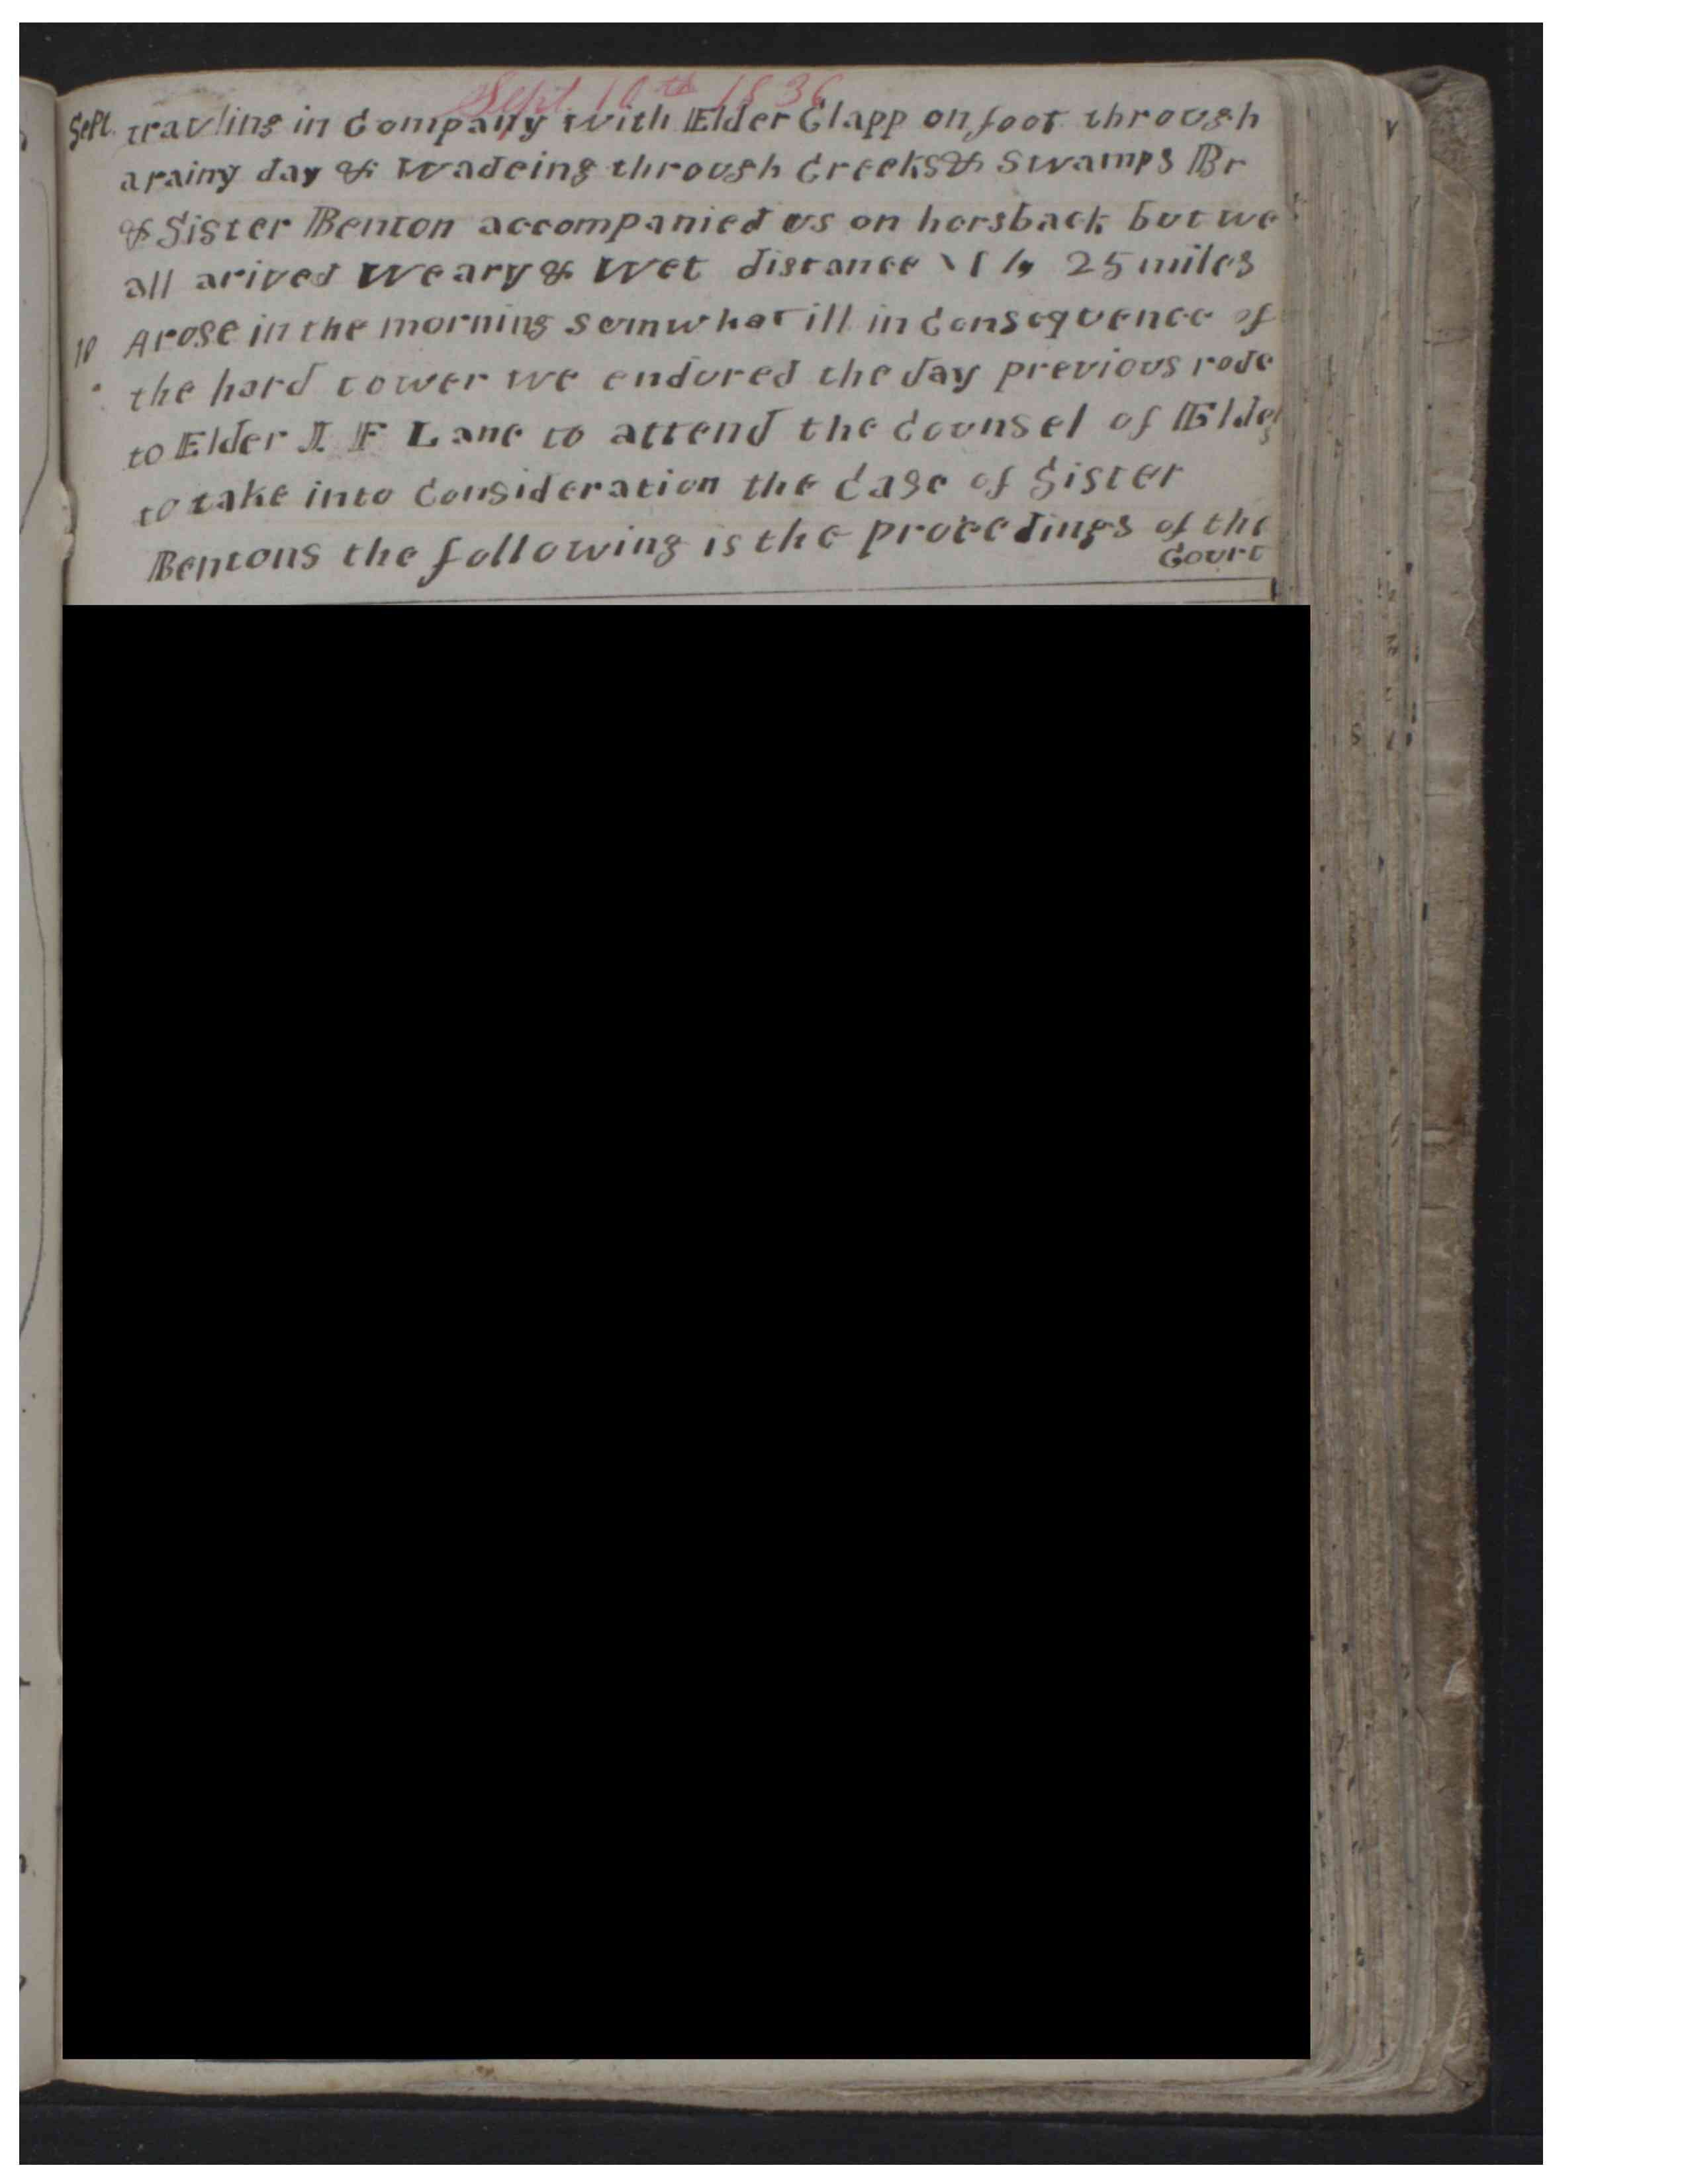 Sept 10th 1836
Sept. travling in Company with Elder Clapp on foot through
a rainy day & Wadeing through Creeks & Swamps Br
& Sister Benton accompanied us on horsback but we
all arived Weary & Wet distance 25 miles
10 Arose in the morning somwhat ill in Consequence of
the hard tower we endured the day previous rode
to Elder I F Lane to attend the Counsel of Elders
to take into Consideration the Case of Sister
Bentons the following is the proceedings of the
Court